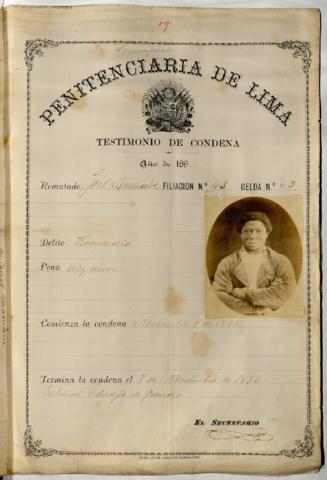 59
PENITENCIARIA DE LIMA
TESTIMONIO DE CONDENA
Año de 189
Rematado José Andrade FILIACION N.º 43 CELDA N.º 63
Delito Homicidio
Pena diez años
Comienza la condena Noviembre 7 de 1882
Termina la condena el 7 de Noviembre de 1892
Tribunal
EL SECRETARIO